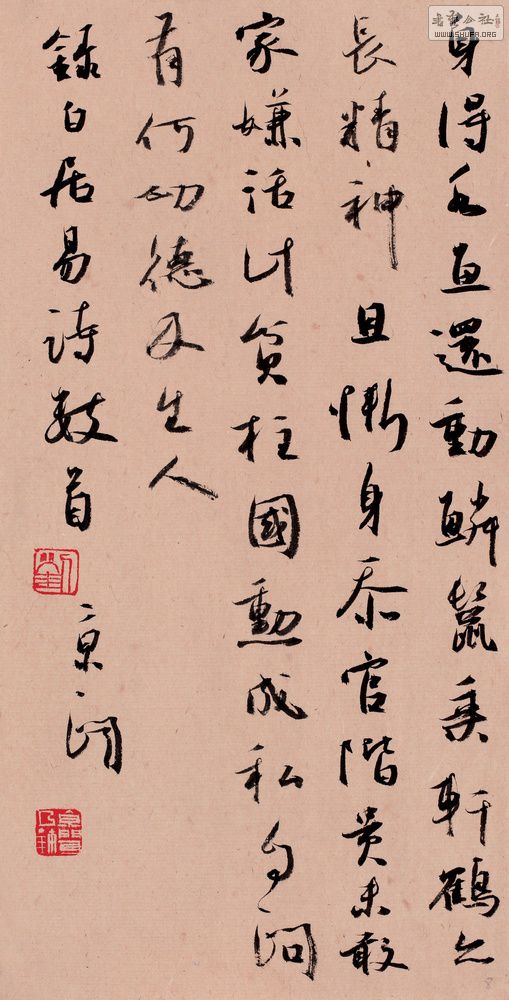 書法公社
WWW.SHUFA.ORG
身得水魚還動鱗鬣乘軒鶴亦
長精神 且慚身忝官階貴未敢
家嫌活計貧柱國勳成私自問
有何功德及生人
錄白居易詩數首 京聞
8